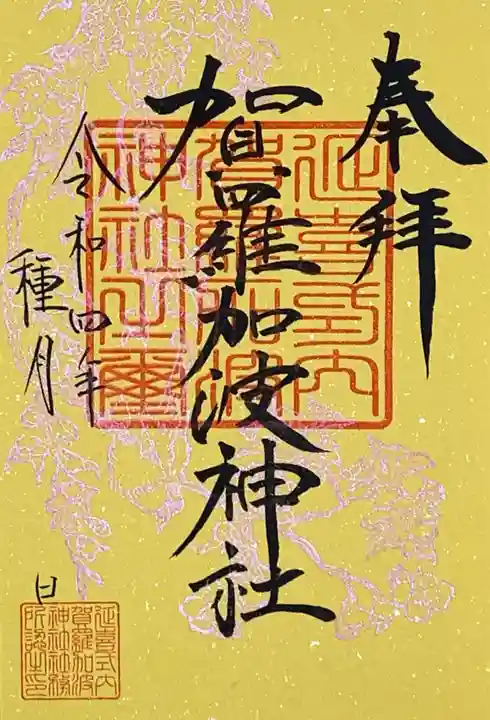 奉拝
延喜式内
賀羅加波
神社之璽
賀羅加波神社
令和四年
種月
日
延喜式内
賀羅加波
神社社務
所認之印